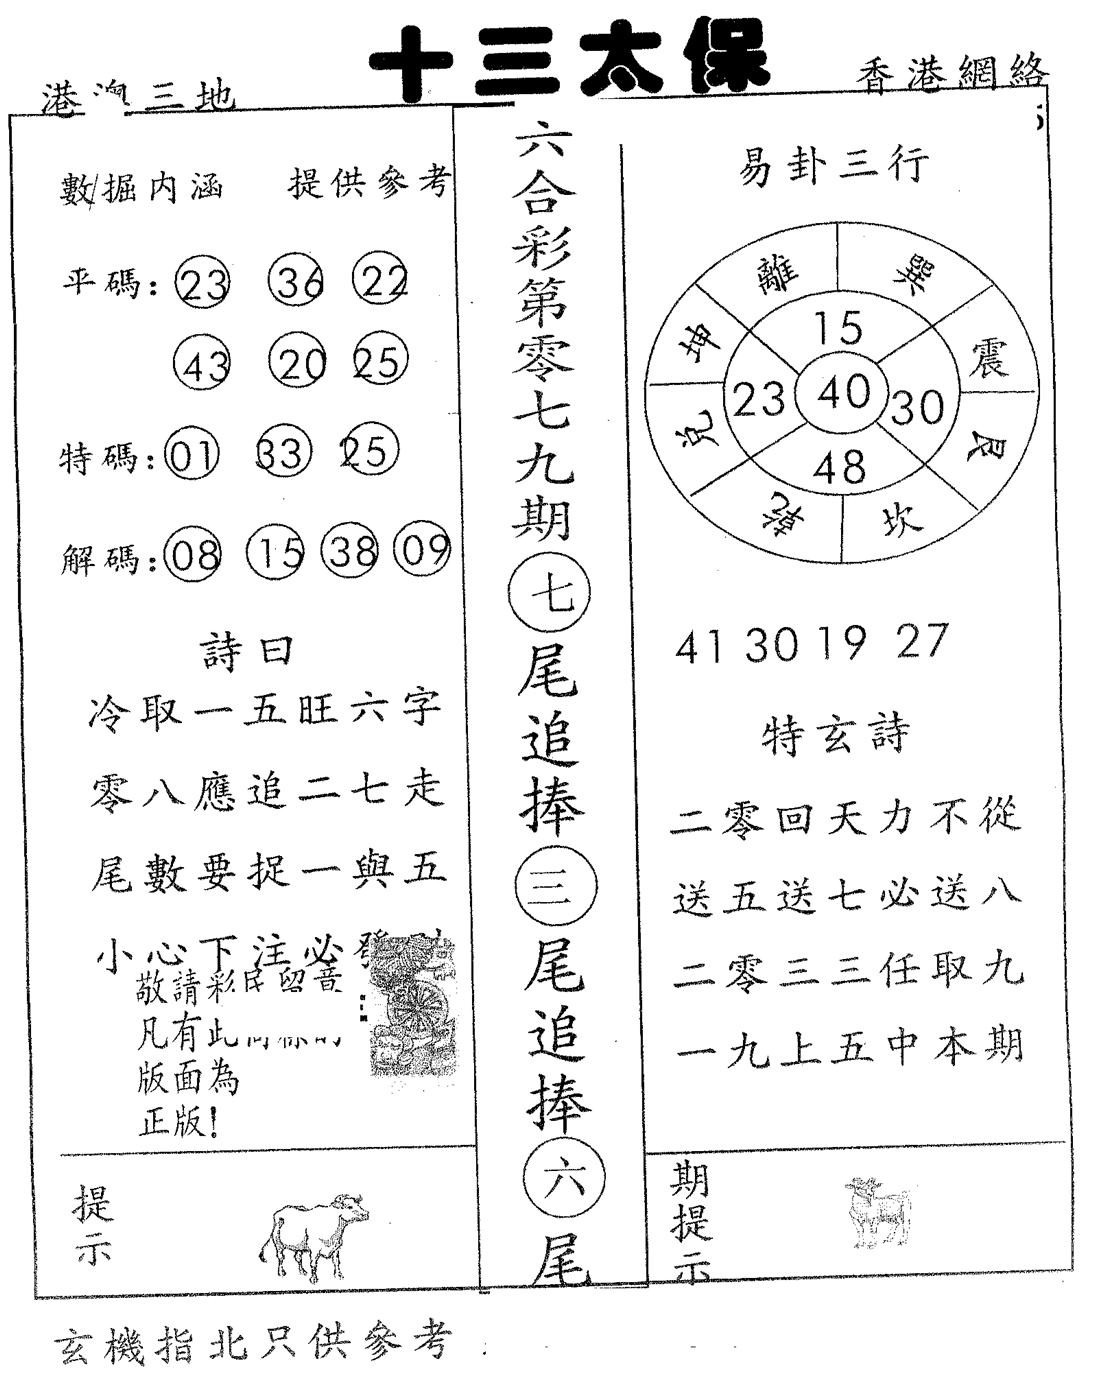 十三太保
港澳三地
香港網絡
數掘内涵 提供參考
平碼：23 36 22
43 20 25
特碼：01 33 25
解碼：08 15 38 09
詩曰
冷取一五旺六字
零八應追二七走
尾數要捉一與五
小心下注必發
敬請彩民留意
凡有此
版面為
正版！
提示
六合彩第零七九期七尾追捧三尾追捧六尾
易卦三行
離 巽
坤 震
兌 艮
乾 坎
15
23 40 30
48
41 30 19 27
特玄詩
二零回天力不從
送五送七必送八
二零三三任取九
一九上五中本期
期提示
玄機指北只供參考